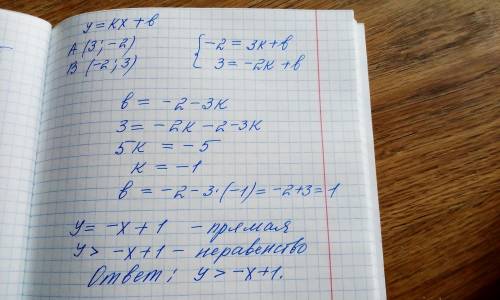 y = kx + b
A (3; -2) { -2 = 3k + b
B (-2; 3) 3 = -2k + b
b = -2 - 3k
3 = -2k - 2 - 3k
5k = -5
k = -1
b = -2 - 3·(-1) = -2+3 = 1
y = -x + 1 - прямая
y > -x + 1 - неравенство
Ответ: y > -x+1.